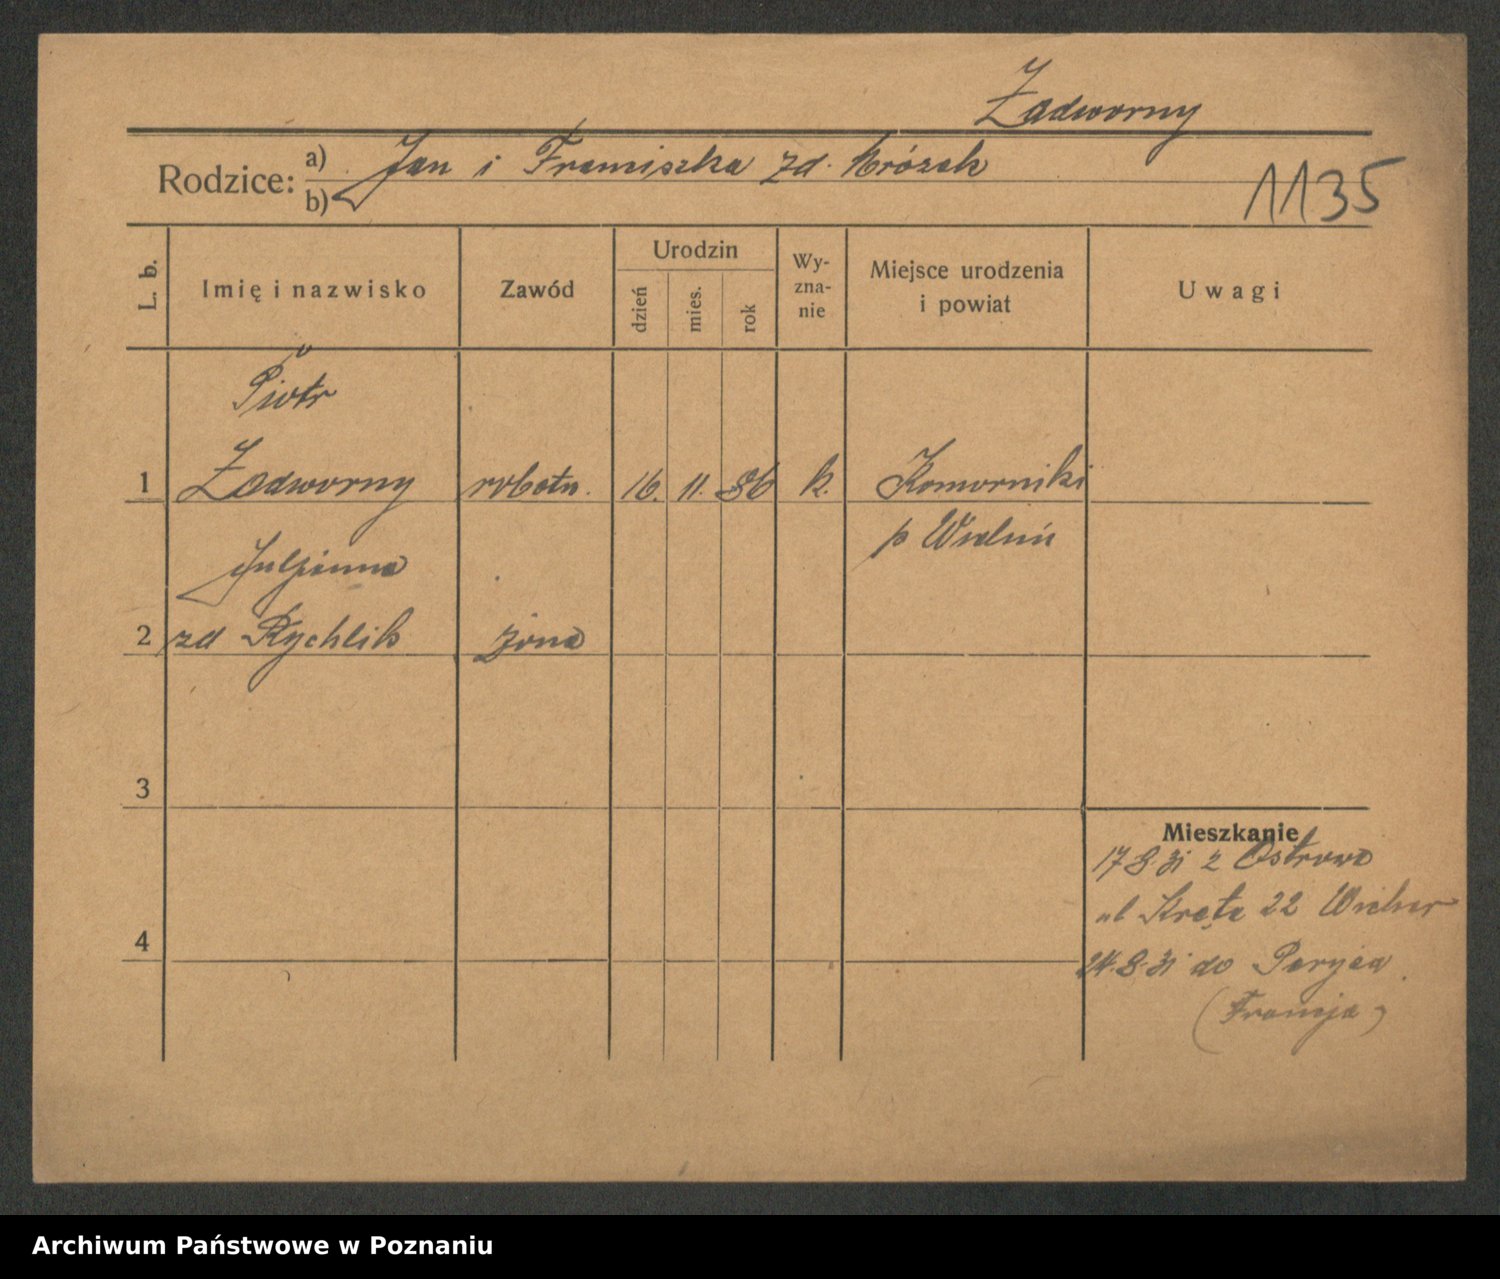 Zadworny
Rodzice: a) Jan i Franciszka zd. Mrózek
b)
1135
L. b.
Imię i nazwisko
Zawód
Urodzin
dzień
mies.
rok
Wy-
zna-
nie
Miejsce urodzenia
i powiat
Uwagi
Piotr
1 Zadworny robotn. 16. 11. 86 k. Komorniki
p Wieluń
Juljanna
2 zd Rychlik żona
3
Mieszkanie
17 8 31 z Ostrowa
ul Kręta 22
4
24.8.31 do Paryża
(Francja)
Archiwum Państwowe w Poznaniu